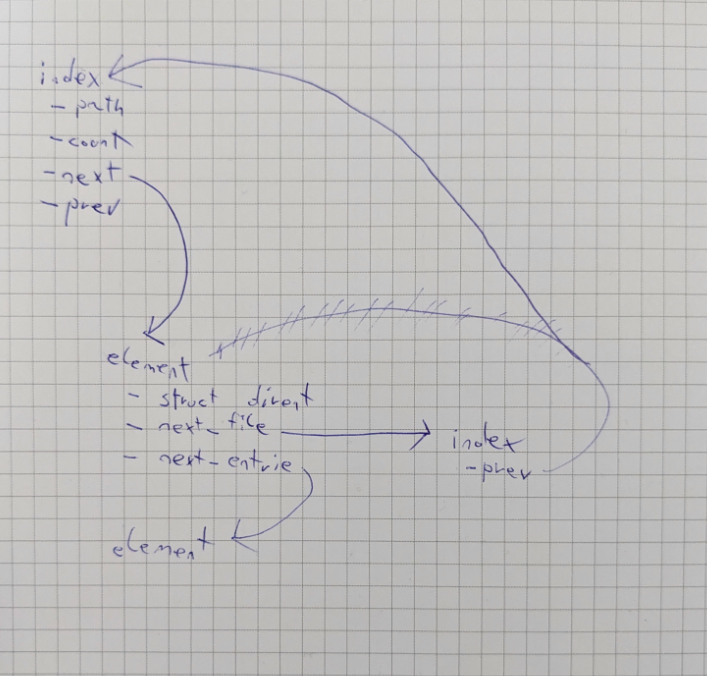 index
- path
- count
- next
- prev
element
- struct dirent
- next_file
- next-entrie
index
- prev
element